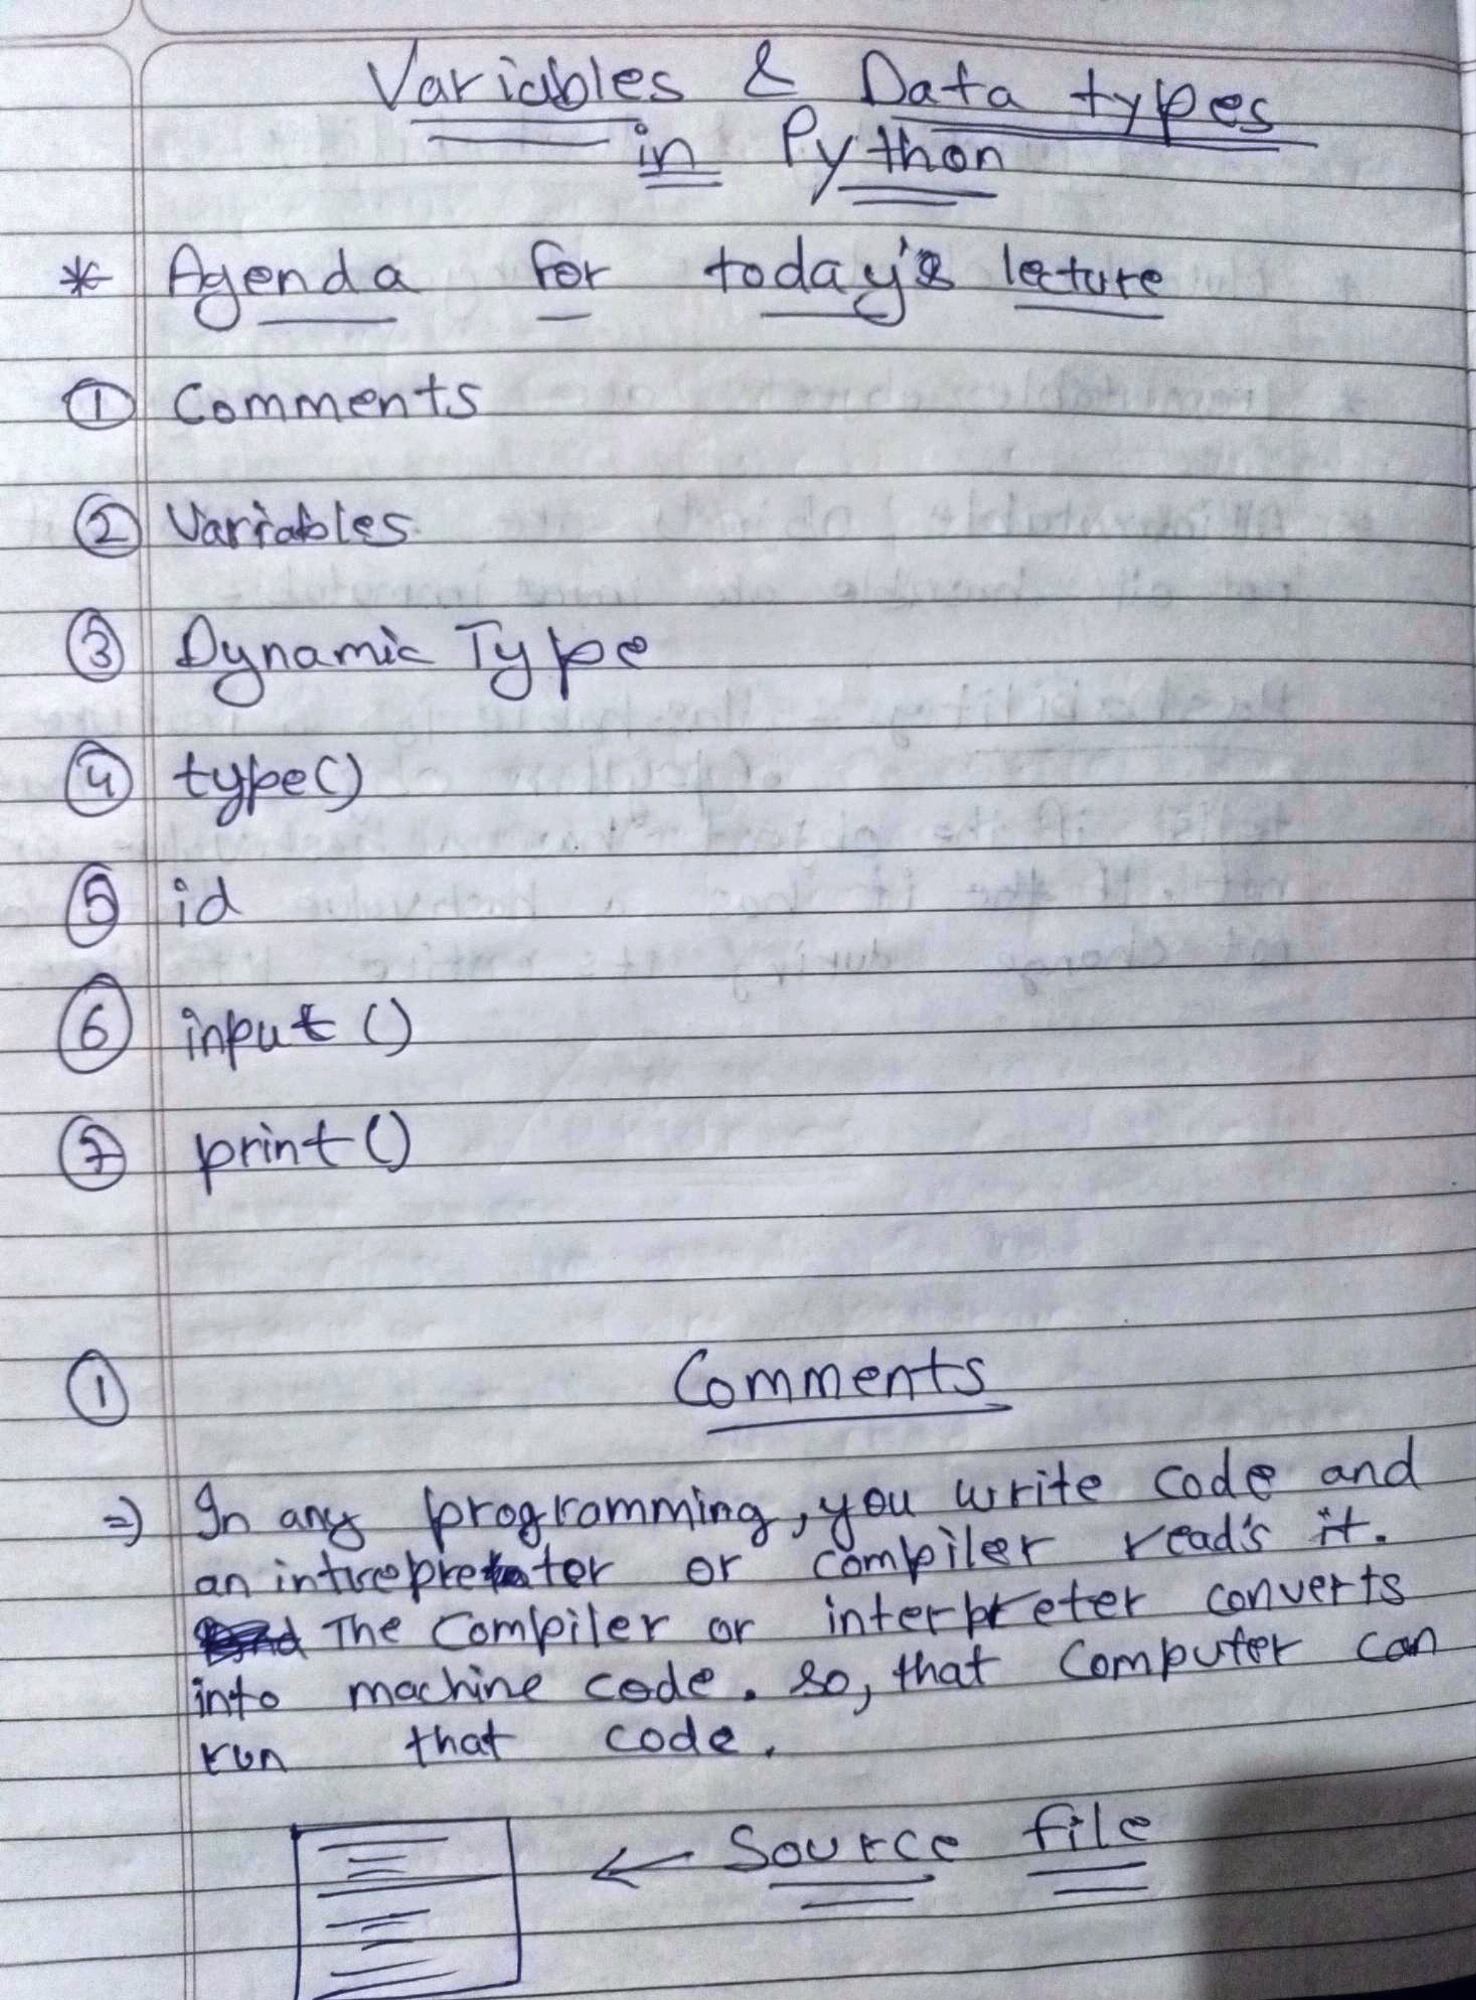 Variables & Data types
in Python
* Agenda for today's lecture
① Comments
② Variables
③ Dynamic Type
④ type()
⑤ id
⑥ input ()
⑦ print ()
① Comments
⇒ In any programming, you write code and
or compiler read's it.
The Compiler or interpreter converts
into machine code. so, that Computer can
run that code.
← Source file